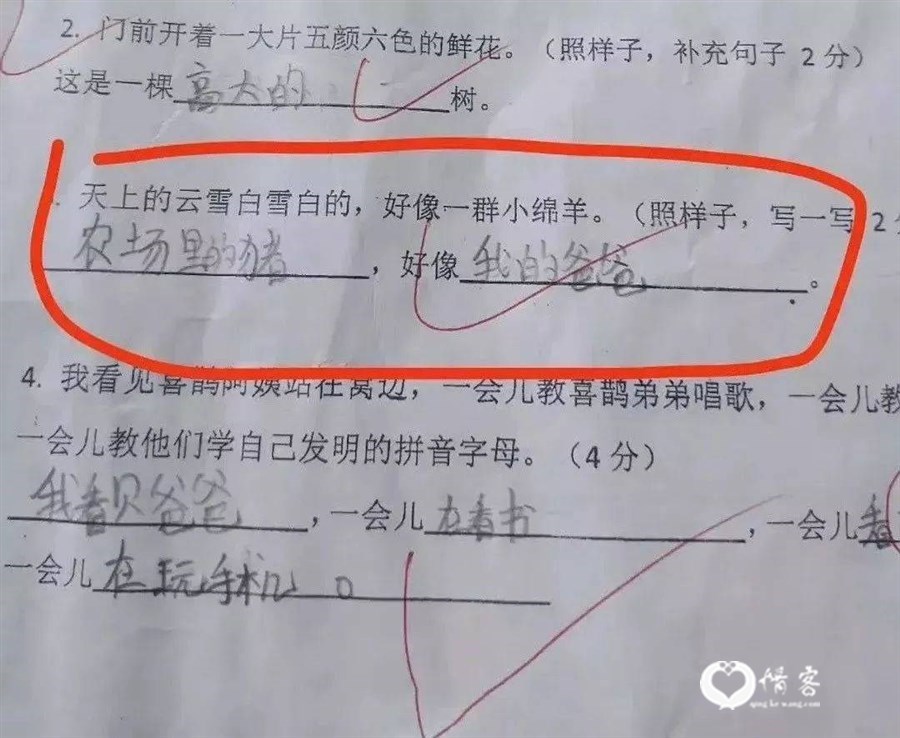 2. 门前开着一大片五颜六色的鲜花。（照样子，补充句子 2 分）
这是一棵高大的树。
天上的云雪白雪白的，好像一群小绵羊。（照样子，写一写 2
农场里的猪，好像我的爸爸。
4. 我看见喜鹊阿姨站在窝边，一会儿教喜鹊弟弟唱歌，一会儿教
一会儿教他们学自己发明的拼音字母。（4 分）
我看贝爸爸，一会儿在看书，一会儿看
一会儿在玩手机。
情客
qing ke wang.com